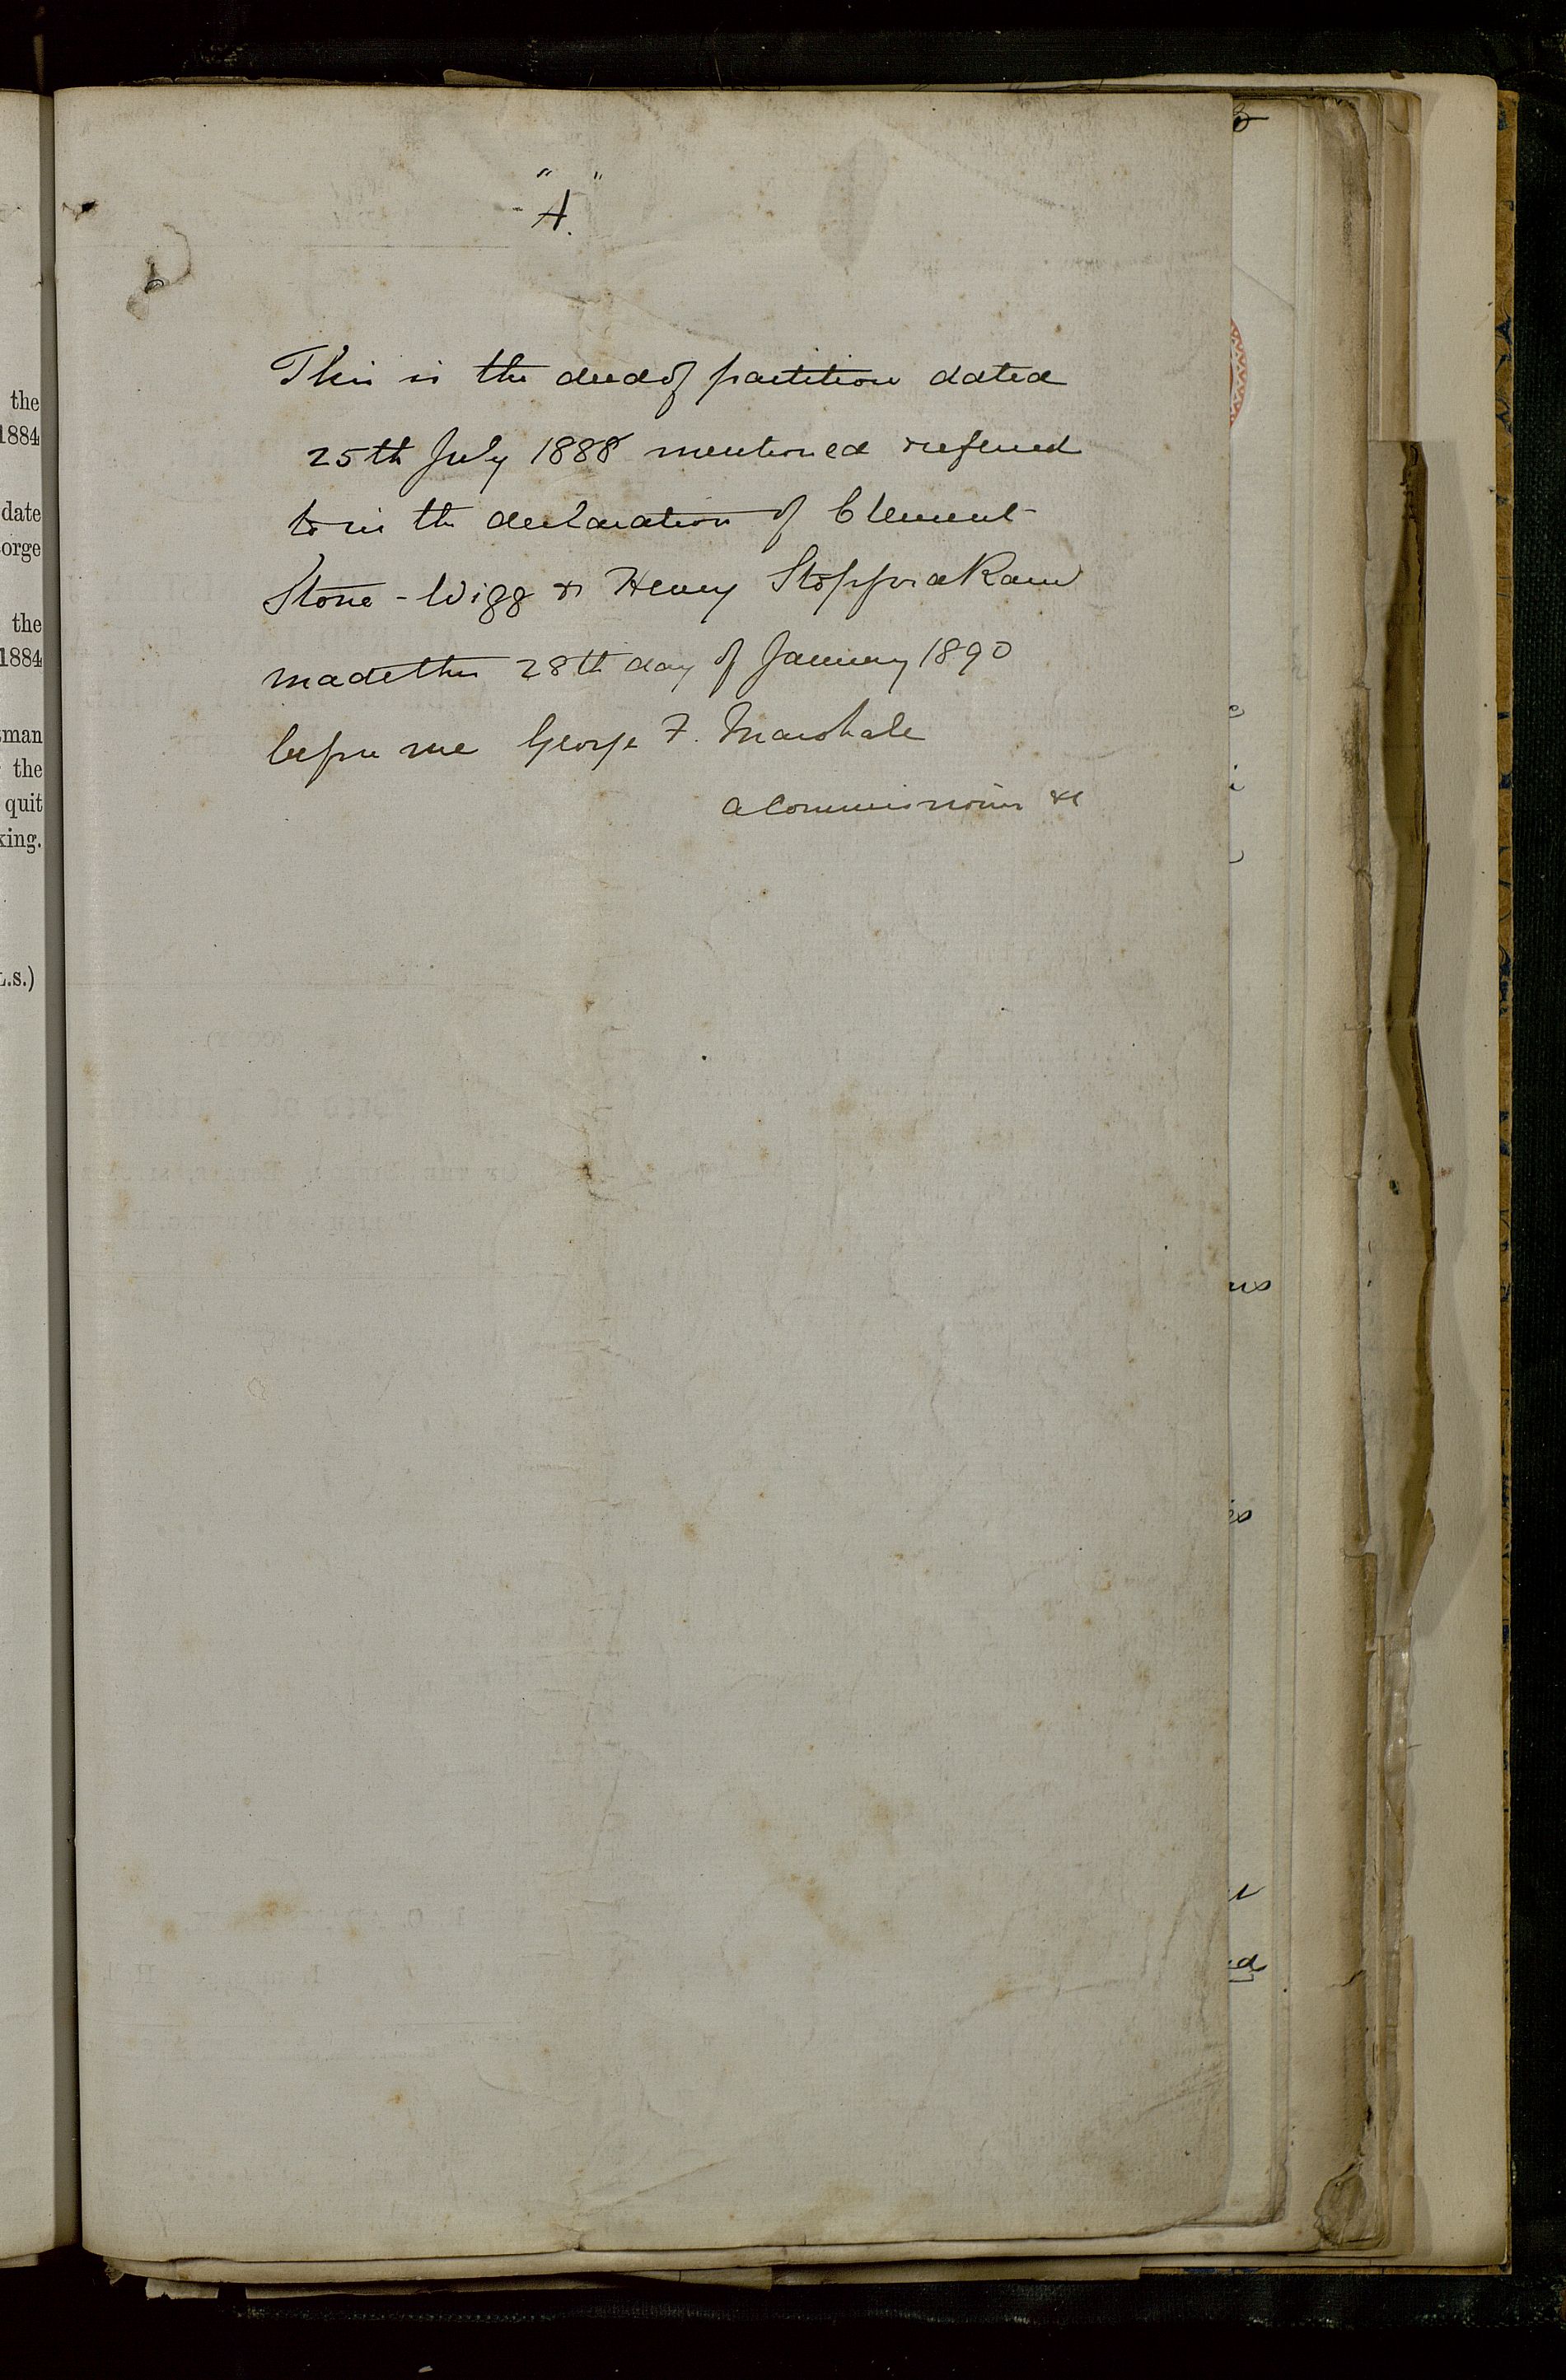 "A."
This is the deed of partition dated
25th July 1888 mentioned & referred
to in the declaration of Clement
Stone-Wigg & Henry Stopford Ram
made this 28th day of January 1890
before me George F. Marshall
a Commissioner &c
the
1884
date
orge
the
1884
man
the
quit
king.
L.s.)